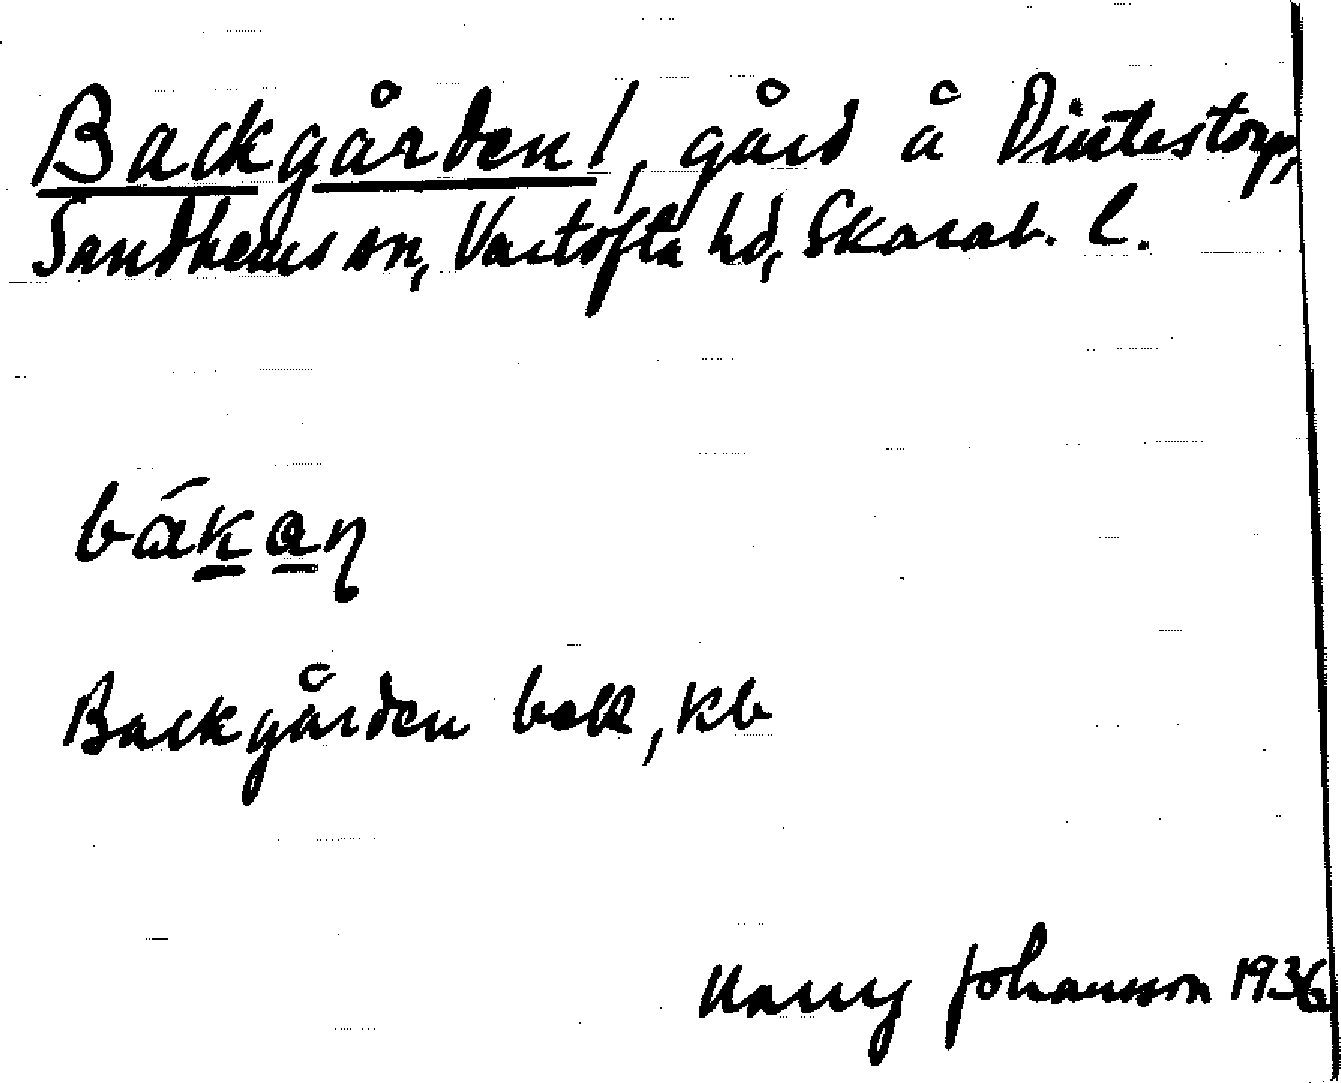 Backgården!, gård å Dintestorp,
Sandhems sn, Vartofta hd, Skarab. l.
bákan
Backgården bek, kb
Harry Johansson 1936